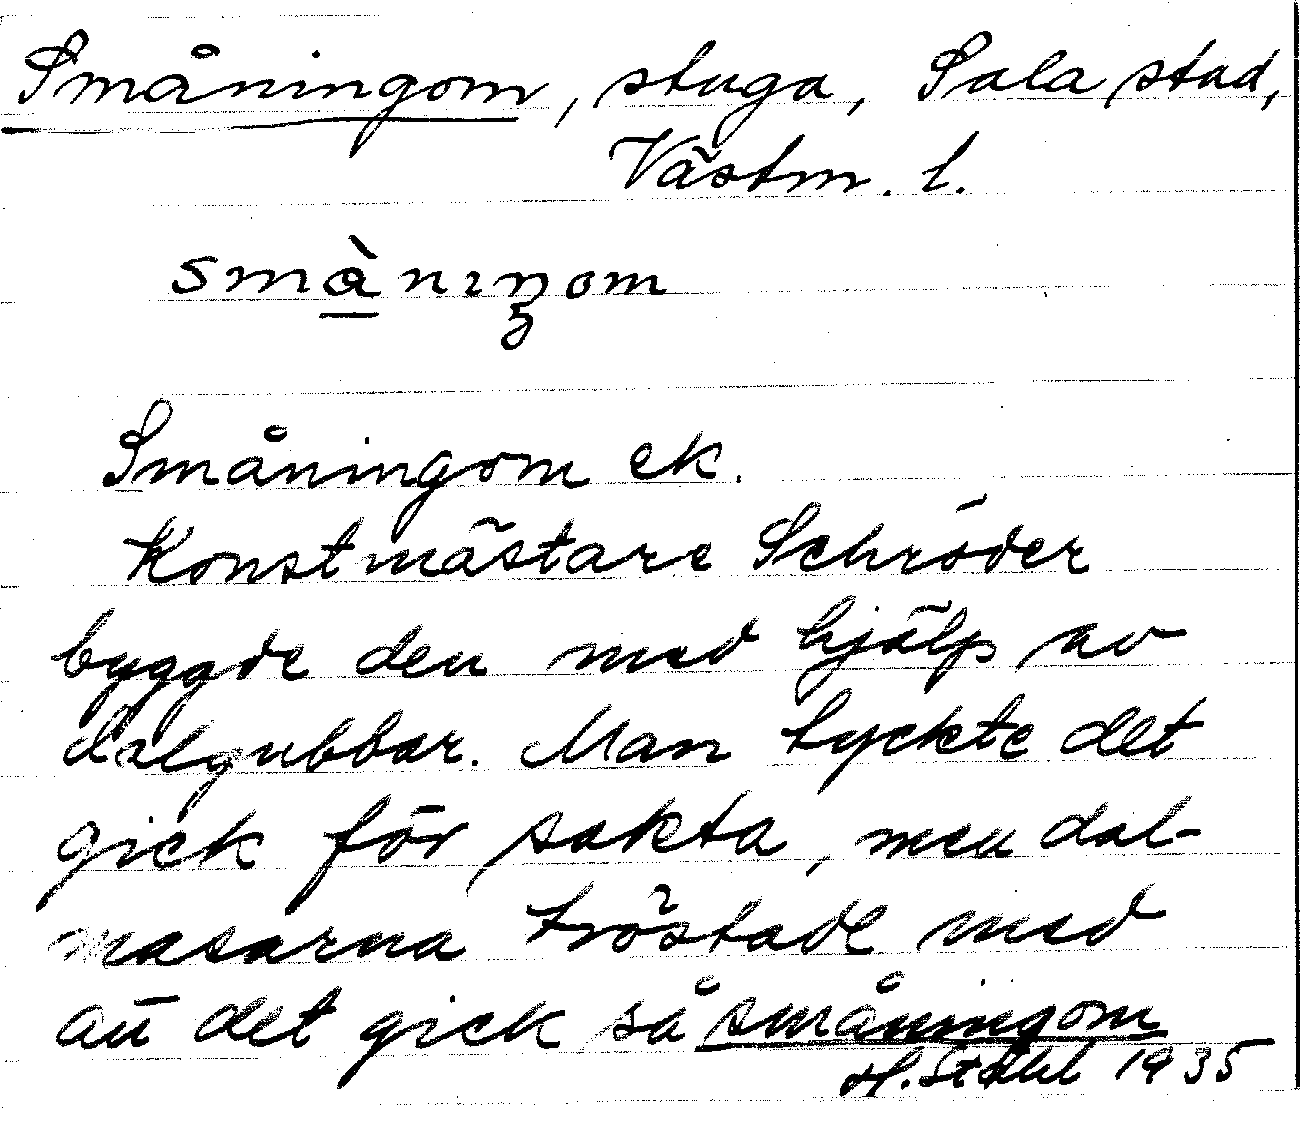 Småningom, stuga, Sala stad,
Västm. l.
småniŋom
Småningom ek.
Konstmästare Schröder
byggde den med hjälp av
dalgubbar. Man tyckte det
gick för sakta, men dal-
masarna tröstade med
att det gick så småningom
H. Ståhl 1935